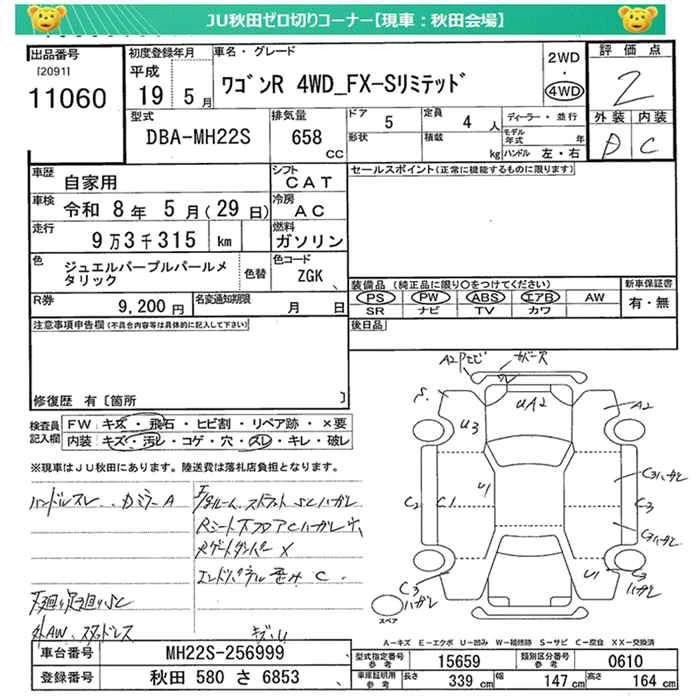 JU秋田ゼロ切りコーナー【現車：秋田会場】
出品番号
[2091]
11060
初度登録年月
平成
19 5 月
車名・グレード
ワゴンR 4WD_FX-Sリミテッド
2WD
・
4WD
評価点
2
外装 内装
D C
型式
DBA-MH22S
排気量
658
CC
ドア 5
形状
定員 4 人
積載 kg
ディーラー・並行
モデル年式 年
ハンドル 左・右
車歴 自家用
シフト CAT
車検 令和 8 年 5 月（29 日）
冷房 AC
走行 9万3千315 km
燃料 ガソリン
色 ジュエルパープルパールメタリック
色替
色コード ZGK
R券 9,200 円
名変通知期限 月 日
セールスポイント(正常に機能するものに限ります)
装備品 (純正品に限り○をつけてください)
PS PW ABS エアB AW
SR ナビ TV カワ
新車保証書
有・無
後日品
注意事項申告欄(不具合内容等は具体的に記入して下さい)
修復歴 有［箇所 ］
検査員記入欄
FW キズ・飛石・ヒビ割・リペア跡・×要
内装 キズ・汚レ・コゲ・穴・スレ・キレ・破レ
※現車はJU秋田にあります。陸送費は落札店負担となります。
ハンドルスレ、カミラーA
ストラットSCハガレ
Rシート下フロアCハガレ
RゲートダンパーX
エンドパネル歪ミ C
下廻リ足廻リSC
外AW、スタッドレス
キズU
A2
カバー欠
W
S
UA2
A2
U3
U1
C2
C1
C3ハガレ
C3
C3ハガレ
C3ハガレ
U1
C3ハガレ
スペア
A－キズ E－エクボ U－凹み W－補修跡 S－サビ C－腐食 XX－交換済
車台番号 MH22S-256999
登録番号 秋田 580 さ 6853
型式指定番号 参考 15659
類別区分番号 参考 0610
車庫証明用 参考 長さ 339 cm 幅 147 cm 高さ 164 cm